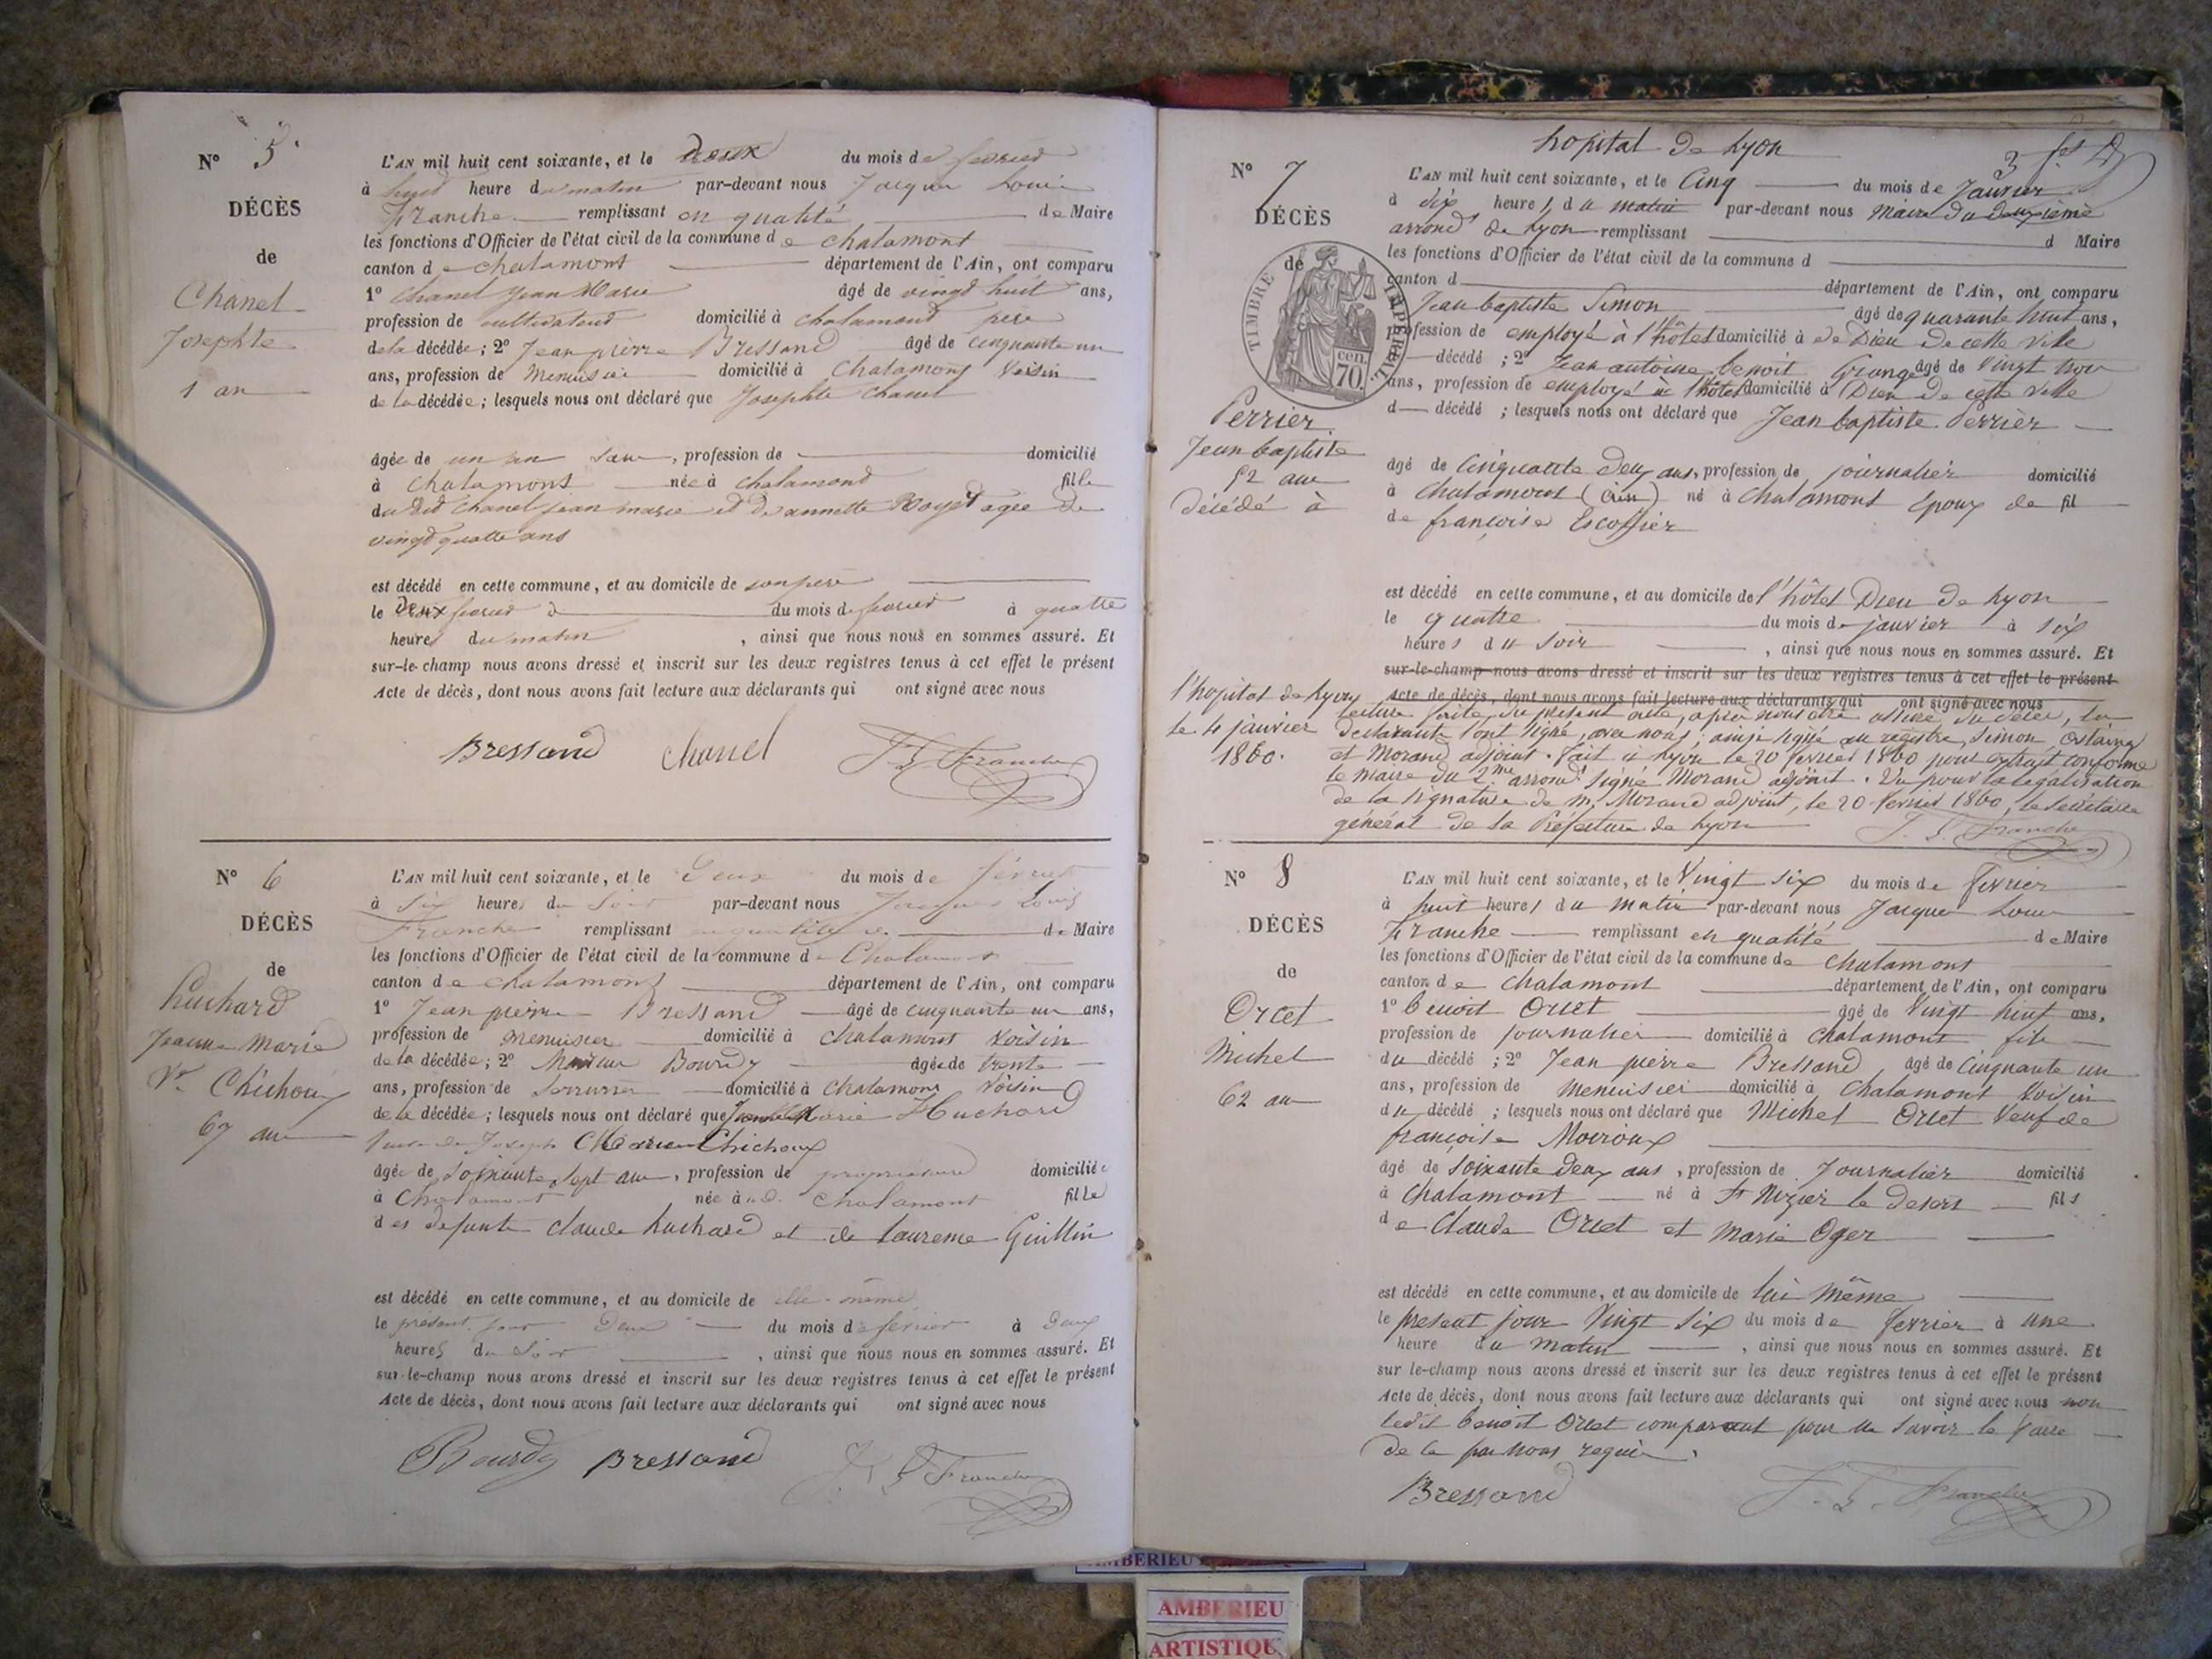 N° 5.
DÉCÈS
de
Chanel
Josephte
1 an
L'AN mil huit cent soixante, et le deux du mois de fevrier
à huit heure du matin par-devant nous Jacque Louis
Franche remplissant en qualité de Maire
les fonctions d'Officier de l'état civil de la commune de chalamont
canton de chalamont département de l'Ain, ont comparu
1° chanel Jean Marie âgé de vingt huit ans,
profession de cultivateur domicilié à chalamont pere
de la décédée; 2° Jean pierre Bressand âgé de cinquante un
ans, profession de Menuisier domicilié à Chalamont Voisin
de la décédée; lesquels nous ont déclaré que Josephte Chanel
âgée de un an, profession de domicilié
à Chalamont née à chalamont fille
du dit Chanel jean marie et de annette agée de
vingt quatre ans
est décédé en cette commune, et au domicile de son pere
le deux fevrier du mois de fevrier à quatre
heures du matin, ainsi que nous nous en sommes assuré. Et
sur-le-champ nous avons dressé et inscrit sur les deux registres tenus à cet effet le présent
Acte de décès, dont nous avons fait lecture aux déclarants qui ont signé avec nous
Bressand Chanel J. L. Franche
N° 6
DÉCÈS
de
Huchard
Jeanne Marie
Ve Chichoux
67 ans
L'AN mil huit cent soixante, et le Deux du mois de février
à Six heures du Soir par-devant nous Jacques Louis
Franche remplissant en qualité de Maire
les fonctions d'Officier de l'état civil de la commune de Chalamont
canton de chalamont département de l'Ain, ont comparu
1° Jean pierre Bressand âgé de cinquante un ans,
profession de menuisier domicilié à chalamont Voisin
de la décédée; 2° Bourdy âgé de trente
ans, profession de Serrurier domicilié à Chalamont Voisin
de la décédée; lesquels nous ont déclaré que Jeanne Marie Huchard
Veuve de Joseph Chichoux
âgée de soixante sept ans, profession de domiciliée
à Chalamont née à Chalamont fille
des defunts claude huchard et de Laurence Guillin
est décédé en cette commune, et au domicile de elle-même
le présent jour Deux du mois de février à Deux
heures du Soir, ainsi que nous nous en sommes assuré. Et
sur-le-champ nous avons dressé et inscrit sur les deux registres tenus à cet effet le présent
Acte de décès, dont nous avons fait lecture aux déclarants qui ont signé avec nous
Bourdy Bressand J. L. Franche
hopital de Lyon
N° 7
DÉCÈS
de
TIMBRE IMPERIAL
70 cen.
Perrier
Jean baptiste
52 ans
décédé à
l'hopital de Lyon
le 4 janvier
1860.
L'AN mil huit cent soixante, et le Cinq du mois de Janvier
à dix heures du matin par-devant nous Maire du deuxième
arrond.t de Lyon remplissant d Maire
les fonctions d'Officier de l'état civil de la commune d
canton d département de l'Ain, ont comparu
Jean baptiste Simon âgé de quarante huit ans,
profession de employé à l'hôtel domicilié à de Dieu de cette ville
décédé; 2° Jean antoine benoit Grange âgé de Vingt trois
ans, profession de employé à l'hôtel domicilié à Dieu de cette ville
d décédé; lesquels nous ont déclaré que Jean baptiste Perrier
âgé de Cinquante deux ans, profession de journalier domicilié
à Chalamont (ain) né à Chalamont époux de fil
de françoise Escoffier
est décédé en cette commune, et au domicile de l'hôtel Dieu de Lyon
le quatre du mois de janvier à six
heures du Soir, ainsi que nous nous en sommes assuré. Et
sur-le-champ nous avons dressé et inscrit sur les deux registres tenus à cet effet le présent
Acte de décès, dont nous avons fait lecture aux déclarants qui ont signé avec nous
lecture faite du présent acte, après nous être assuré du décès, les
declarants l'ont signé avec nous, ainsi signé au registre, Simon,
et Morand adjoint. fait à Lyon le 20 fevrier 1860 pour extrait conforme
le maire du 2me arrond.t signé Morand adjoint. Vu pour la legalisation
de la signature de m. Morand adjoint, le 20 fevrier 1860, le Secrétaire
général de la Préfecture de Lyon J. L. Franche
N° 8
DÉCÈS
de
Orcet
Michel
62 ans
L'AN mil huit cent soixante, et le Vingt six du mois de fevrier
à huit heures du matin par-devant nous Jacque Louis
Franche remplissant en qualité de Maire
les fonctions d'Officier de l'état civil de la commune de Chalamont
canton de Chalamont département de l'Ain, ont comparu
1° benoit Orcet âgé de Vingt neuf ans,
profession de Journalier domicilié à Chalamont fils
du décédé; 2° Jean pierre Bressand âgé de Cinquante un
ans, profession de menuisier domicilié à Chalamont Voisin
du décédé; lesquels nous ont déclaré que Michel Orcet Veuf de
françoise Moiroux
âgé de Soixante deux ans, profession de Journalier domicilié
à Chalamont né à St Nizier le desert fils
de Claude Orcet et Marie Oger
est décédé en cette commune, et au domicile de lui même
le présent jour Vingt six du mois de fevrier à une
heure du Matin, ainsi que nous nous en sommes assuré. Et
sur-le-champ nous avons dressé et inscrit sur les deux registres tenus à cet effet le présent
Acte de décès, dont nous avons fait lecture aux déclarants qui ont signé avec nous non
ledit benoit Orcet comparant pour ne Savoir le faire
de ce par nous requis.
Bressand J. L. Franche
AMBERIEU
AMBERIEU
ARTISTIQU